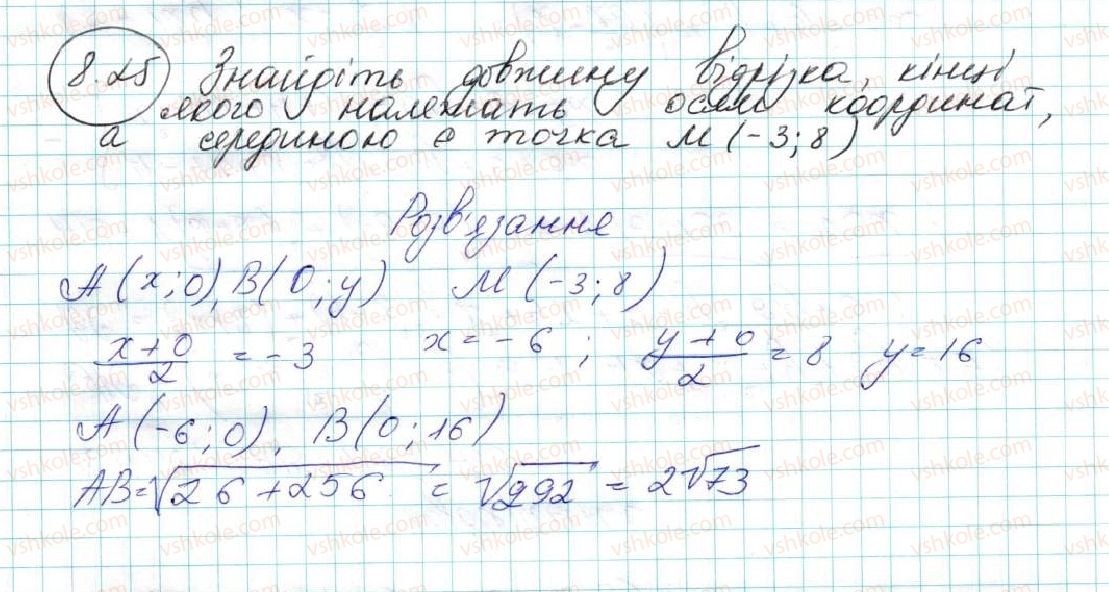 8.25 Знайдіть довжину відрізка, кінці
якого належать осям координат,
а серединою є точка М (-3; 8)
Розв'язання
А (x; 0), В(0; y) М (-3; 8)
(x + 0)/2 = -3 x = -6; (y + 0)/2 = 8 y = 16
А(-6; 0), В(0; 16)
АВ = √(26 + 256) = √292 = 2√73